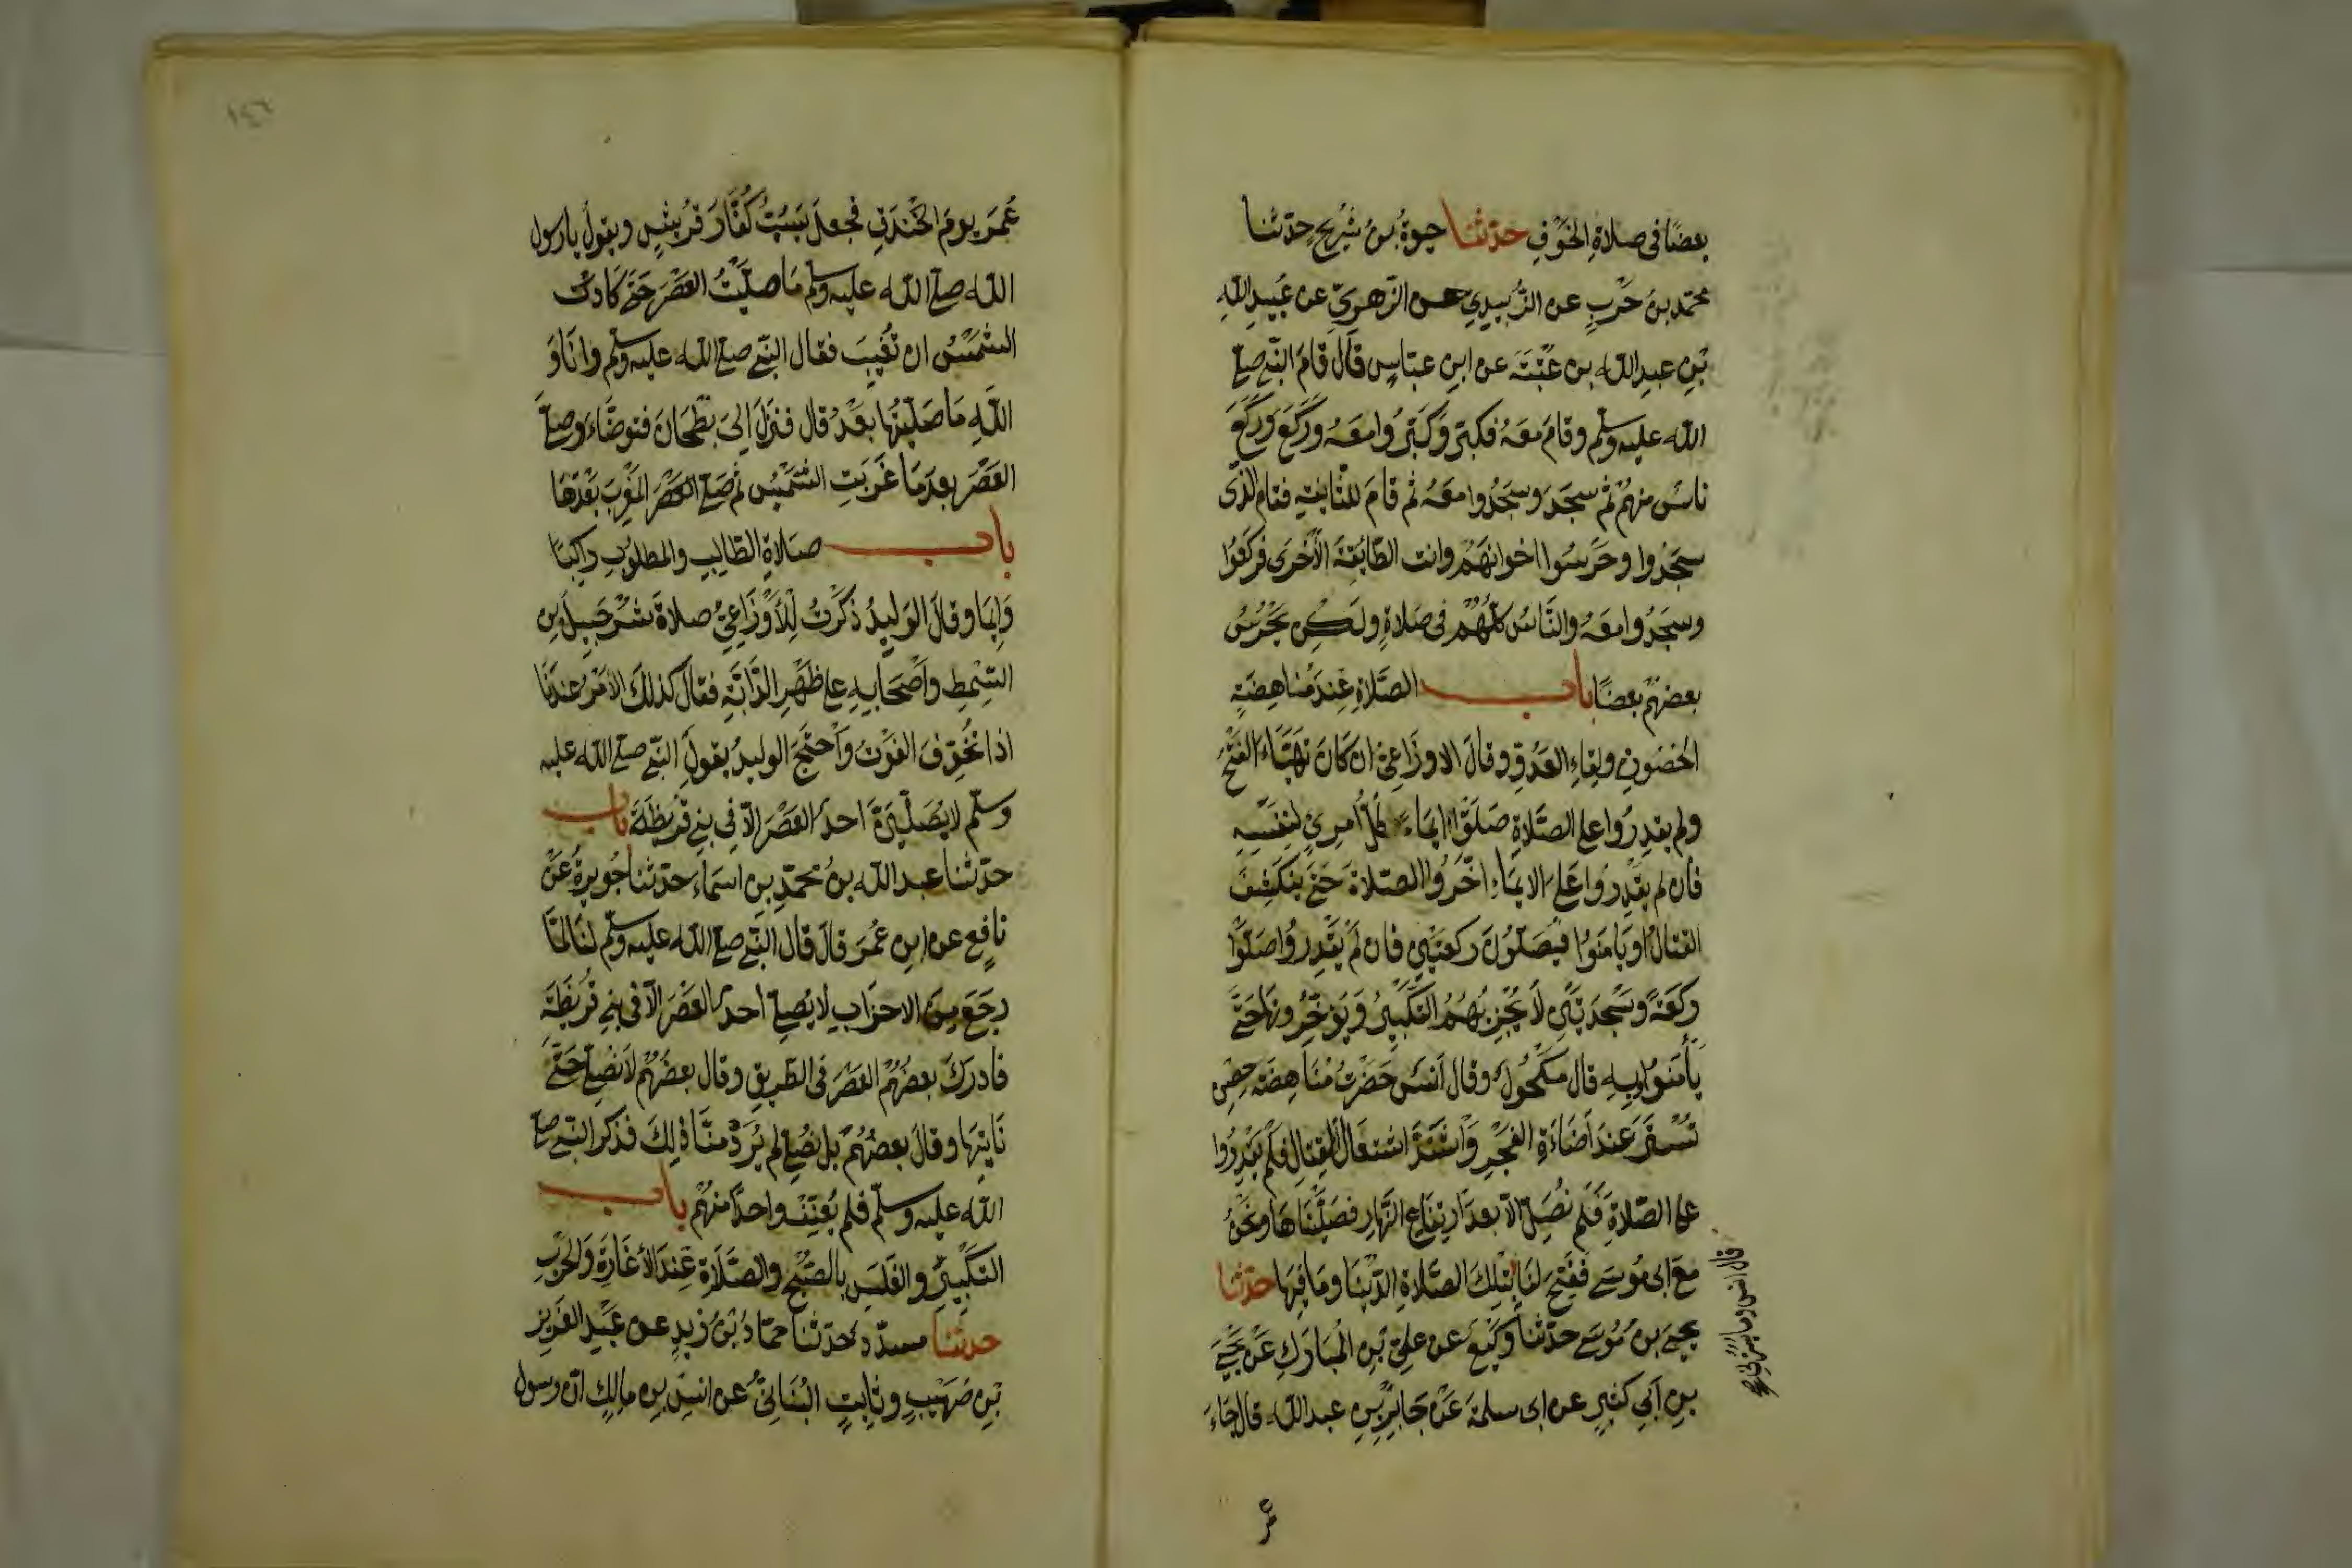 بعضًا في صلاةِ الخَوْفِ حدّثنا حيوةُ بنُ شُرَيحٍ حدّثنا
محمّد بنُ حَرْبٍ عن الزُّبيدِيِّ عن الزّهرِيِّ عن عُبيدِ اللهِ
بْنِ عبدِ الله بن عُتْبَةَ عن ابنِ عبّاسٍ قالَ قامَ النّبي صلى
الله عليه وسلم وقامَ معَهُ فكبّرَ وَكَبّرُوا معَهُ ورَكَعَ ورَكَعَ
ناسٌ منهُمْ ثم سجَدَ وسجَدُوا معَهُ ثم قامَ للثّانِيَةِ فقام الذي
سجَدُوا وحَرَسُوا اخوانهَمْ واتت الطّايفَةُ الأخرَى فركَعُوا
وسجَدُوا معَهُ والنّاسُ كلُّهُمْ في صَلاةٍ ولكن يَحْرُسُ
بعضهُمْ بعضًا باب الصَّلاةِ عِندَ مُناهضَةِ
الحُصُونِ ولِقاءِ العَدُوِّ وقالَ الاوزَاعِيّ ان كانَ تَهَيَّاءَ الفَتْحُ
ولم يقدِرُوا على الصَّلاةِ صَلَّوْا ايماءً كلُّ أمرئٍ لنفسِهِ
فان لم يقْدِرُوا عَلَى الايمَاءِ اخّرُوا الصّلاةَ حَتّى ينكَشِفَ
القتالُ او يَأمَنُوا فيُصَلّونَ ركعتَيْنِ فان لَمْ يَقْدِرُوا صَلَّوْا
رَكعَةً وسَجْدَتَيْنِ لاَ يُجْزِيهُمُ التّكْبِيرُ وَيؤَخِّرُونهَا حَتّى
يأمَنُوا وبِهِ قال مَكْحُولٌ وقال أنَسٌ حَضَرْتُ مُنَاهضَةَ حِصْنِ
تُسْتَرَ عِندَ أضَاءَةِ الفَجْرِ وَاشْتَدَّ اشتعَالُ القِتالِ فلَم يَقْدِرُوا
على الصّلاةِ فَلَم نُصَلِّ الاّ بعدَ ارتِفَاعِ النّهارِ فصَلّيْنَاهَا ونحْنُ
معَ ابى مُوسَى ففُتِحَ لنَا بتِلكَ الصّلاةِ الدّنيَا ومَا فيهَا حدّثنا
يحيَى بنُ مُوسَى حدّثنا وكيْعٌ عن علِيّ بْنِ المُبَارَكِ عَنْ يحْيَى
بنِ أبي كثيرٍ عن ابى سلمةَ عَنْ جَابِرِ بْنِ عبدِ الله قال جَاءَ
قال انس وما يَسُرُّني صح
عمر
عُمَرَ يومَ الخَنْدَقِ فجعلَ يَسُبُّ كُفّارَ قُرَيشٍ ويقولُ يا رسول
الله صلى الله عليه وسلم مَا صلّيْتُ العَصْرَ حَتّى كَادت
الشمْسُ ان تَغِيبَ فقال النّبي صلى الله عليه وسلم وانَا وَ
اللهِ مَا صَلّيْتُهَا بعْدُ قال فنزَلَ إلى بُطْحَانَ فتوضّاءَ وصلّى
العَصْرَ بعدَمَا غَرَبَتِ الشّمْسُ ثم صَلّى العصْرَ المَغْرِبَ بَعْدَهَا
باب صلاةِ الطّالبِ والمطلوبِ راكبًا
وَايمَا وقالَ الوَليدُ ذكَرْتُ لِلأوْزَاعِيّ صلاةَ شُرَحبِيلَ بنِ
السّمْطِ واَصْحَابِهِ على ظَهْرِ الدّابّةِ فقالَ كذلكَ الامرُ عندَنَا
اذا تُخُوِّفَ الفَوْتُ وَاحتَجّ الوليدُ بقولِ النّبي صلى الله عليه
وسلّم لا يُصَلّيَنَّ احدٌ العَصْرَ الاّ في بني قُرَيظَةَ باب
حدّثنا عبد الله بنُ محمّدِ بنِ اسمَاءَ حدّثنا جُويريةُ عَنْ
نافِعٍ عن ابنِ عُمَرَ قالَ قال النّبي صلى الله عليه وسلّم لنَا لمّا
رجَعَ مِنَ الاحزَابِ لا يُصلى احدٌ العَصْرَ الاّ في بني قُرَيظَةَ
فادركَ بعضُهُمْ العَصْرَ في الطّريقِ وقال بعضُهُمْ لاَ نُصَلّي حَتّى
نَاتِيَهَا وقالَ بعضُهُمْ بل نُصَلّي لم يُرَدْ منّا ذلِكَ فذكرَ النّبي صلى
الله عليه وسلّم فلم يُعَنِّفْ واحدًا منهُمْ باب
التّكْبِيرِ والغَلَسِ بالصّبْحِ والصّلاةِ عِندَ الأغَارَةِ وَالحَرْبِ
حدّثنا مسدّد حدّثنا حمّادُ بْنُ زَيدٍ عن عَبْدِ العَزِيزِ
بْنِ صُهَيْبٍ وثابتٍ البُنَانِيّ عن انسِ بنِ مالِكٍ انّ رسول